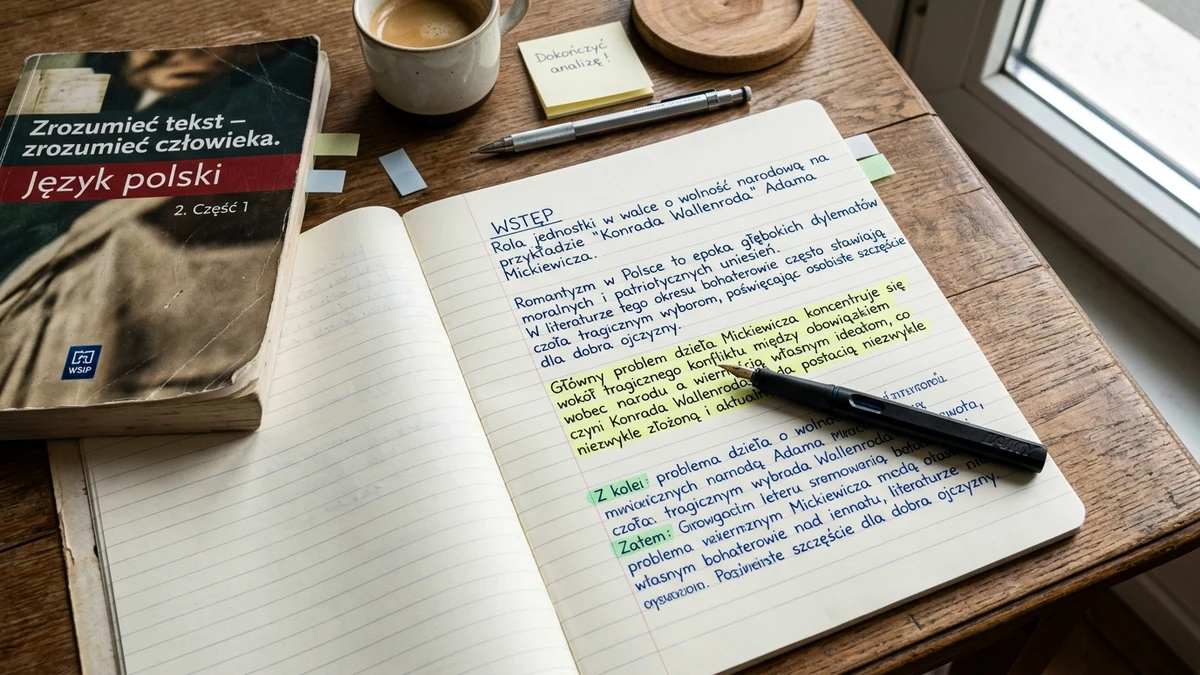 Zrozumieć tekst –
zrozumieć człowieka.
Język polski
2. Część 1
WSiP
Dokończyć
analizę!
WSTĘP
Rola jednostki w walce o wolność narodową na
przykładzie "Konrada Wallenroda" Adama
Mickiewicza.
Romantyzm w Polsce to epoka głębokich dylematów
moralnych i patriotycznych uniesień.
W literaturze tego okresu bohaterowie często stawiają
czoła tragicznym wyborom, poświęcając osobiste szczęście
dla dobra ojczyzny.
Główny problem dzieła Mickiewicza koncentruje się
wokół tragicznego konfliktu między obowiązkiem
wobec narodu a wiernością własnym ideałom, co
czyni Konrada Wallenroda postacią niezwykle
niezwykle złożoną i
Z kolei: problema dzieła o
narodą Adama
czoła: tragicznym wybrada Wallenroda
Zatem:
problema Mickiewicza
własnym bohaterowie nad literature
szczęście dla dobra ojczyzny.